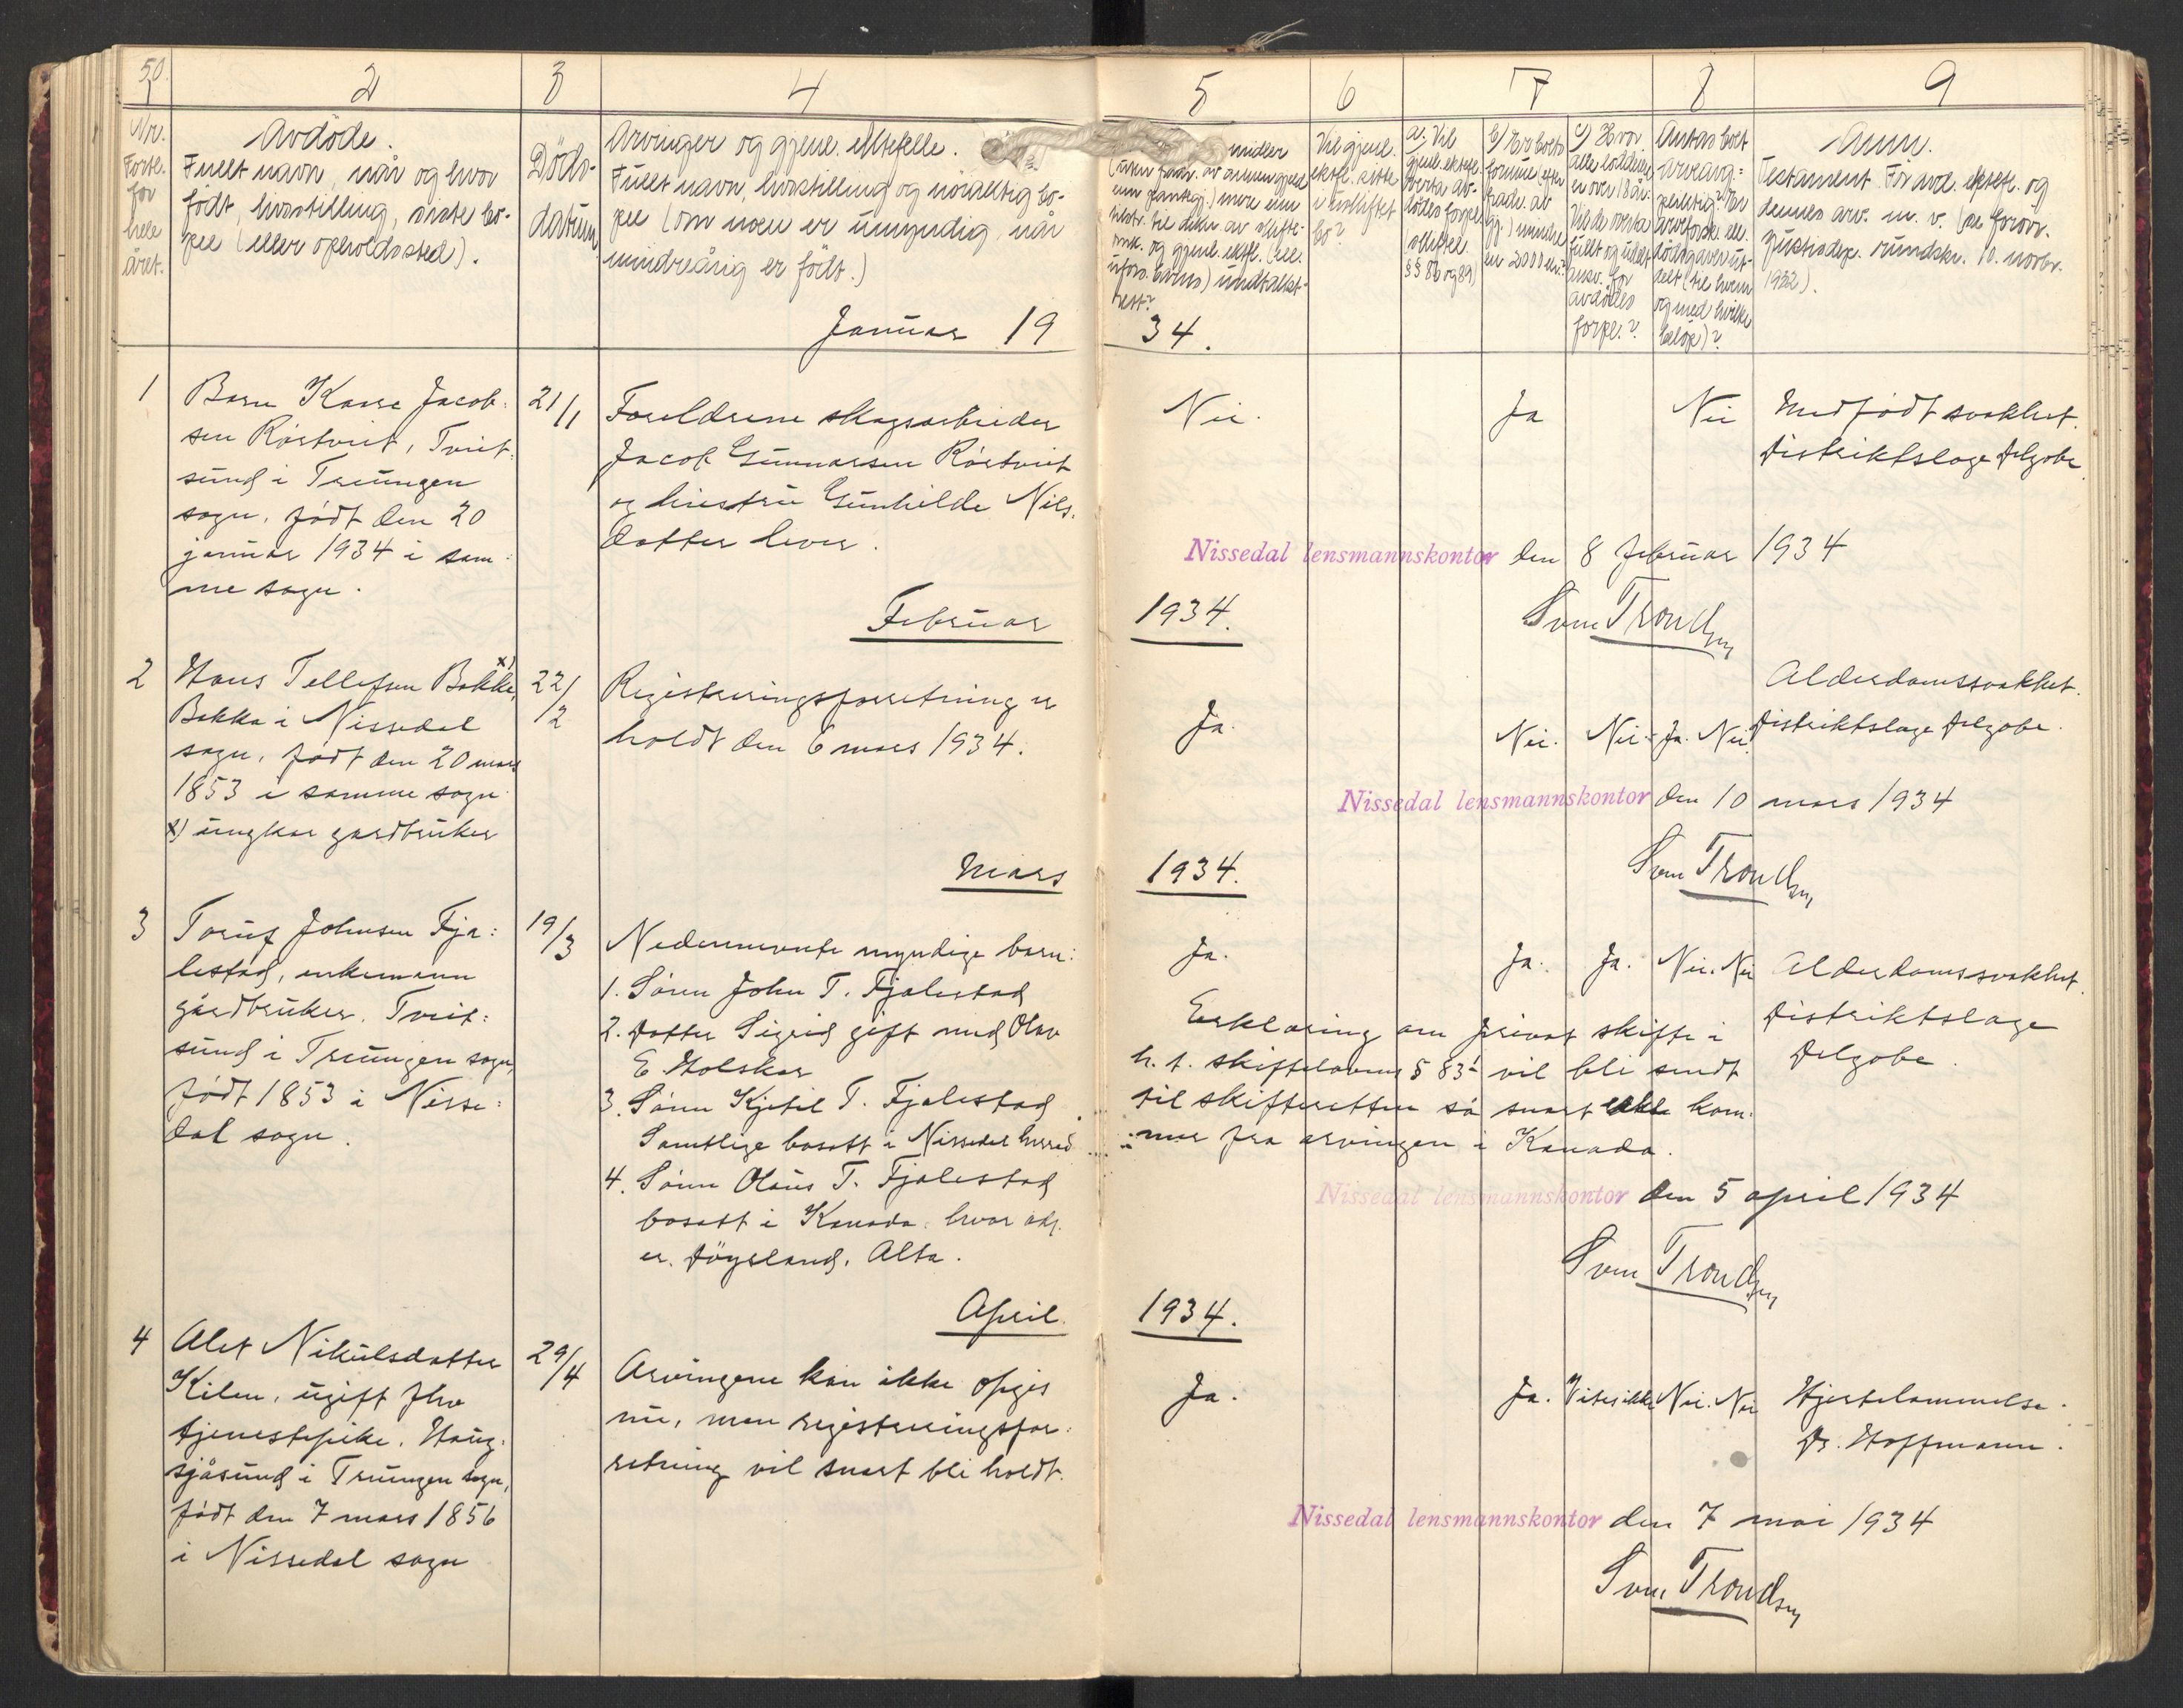 50.
1
2
3
4
5
6
7
8
9
Nr.
Fortl.
for
hele
året.
Avdöde.
Fullt navn, når og hvor
födt, livsstilling, siste bo-
pel (eller opholdssted).
Döds-
datum
Arvinger og gjenl. ektefelle.
Fullt navn, livsstilling og nöiaktig bo-
pel (om noen er umyndig, når
mindreårig er födt.)
midler
Vil gjenl.
ektef. sitte
i uskiftet
bo?
a) Vil
gjenl. ektef.
overta av-
dödes forpl.
§§ 86 og 89)
b) Er boets
formue
en 2000 kr.?
c) Hvor
alle loddeiere
er over 18 år.
Vil de overta
fullt og udelt
ansv. for
avdödes
forpl.?
Antas boet
arveavg.-
pliktig?
dödsgaver ut-
delt (til hvem
og med hvilke
belöp)?
Anm.
Testament. For avd. ektef. og
dennes arv. m. v. (se forövr.
Justisdep. rundskr. 10. novbr.
1932).
Januar 19
34.
1
Barn Kaare Jacob-
sen Röstveit, Tveit-
sund i Treungen
sogn, født den 20
januar 1934 i sam-
me sogn.
21/1
Foreldrene skogsarbeider
Jacob Gunnarsen Röstveit
og hustru Gunhilde Nils-
datter lever.
Nei.
Ja
Nei
Medfødt svakhet.
Distriktslæge Felgobe.
Nissedal lensmannskontor den 8 februar 1934
Sven Trondsen
Februar
1934.
2
Hans Tellefsen Bakka x)
Bakka i Nissedal
sogn, født den 20 mars
1853 i samme sogn
x) ungkar gardbruker
22/2
Registreringsforretning er
holdt den 6 mars 1934.
Ja.
Nei. Nei. Ja. Nei
Alderdomssvakhet.
Distriktslæge Felgobe.
Nissedal lensmannskontor den 10 mars 1934
Sven Trondsen
Mars
1934.
3
Torjuf Johnsen Fja-
lestad, enkemann
gårdbruker, Tveit-
sund i Treungen sogn,
født 1853 i Nisse-
dal sogn.
19/3
Nedennevnte myndige barn:
1. Sønn John T. Fjalestad
2. Datter Sigrid gift med Olav
E. Holskar
3. Sønn Kjetil T. Fjalestad
Samtlige bosatt i Nissedal herred
4. Sønn Olaus T. Fjalestad
bosatt i Kanada, hvor adr.
er. Döysland, Alta.
Ja.
Ja. Ja. Nei. Nei
Alderdomssvakhet.
Distriktslæge
Felgobe.
Erklæring om privat skifte i
h. t. skiftelovens § 83 vil bli sendt
til skifteretten så snart kom-
mer fra arvingen i Kanada.
Nissedal lensmannskontor den 5 april 1934
Sven Trondsen
April.
1934.
4
Alet Nikulsdatter
Kilen, ugift fhv
tjenestepike, Haug-
sjåsund i Treungen sogn,
født den 7 mars 1856
i Nissedal sogn
29/4
Arvingene kan ikke opgis
nu, men registreringsfor-
retning vil snart bli holdt.
Ja.
Ja. Vites ikke Nei. Nei
Hjertelammelse.
Dr. Hoffmann.
Nissedal lensmannskontor den 7 mai 1934
Sven Trondsen